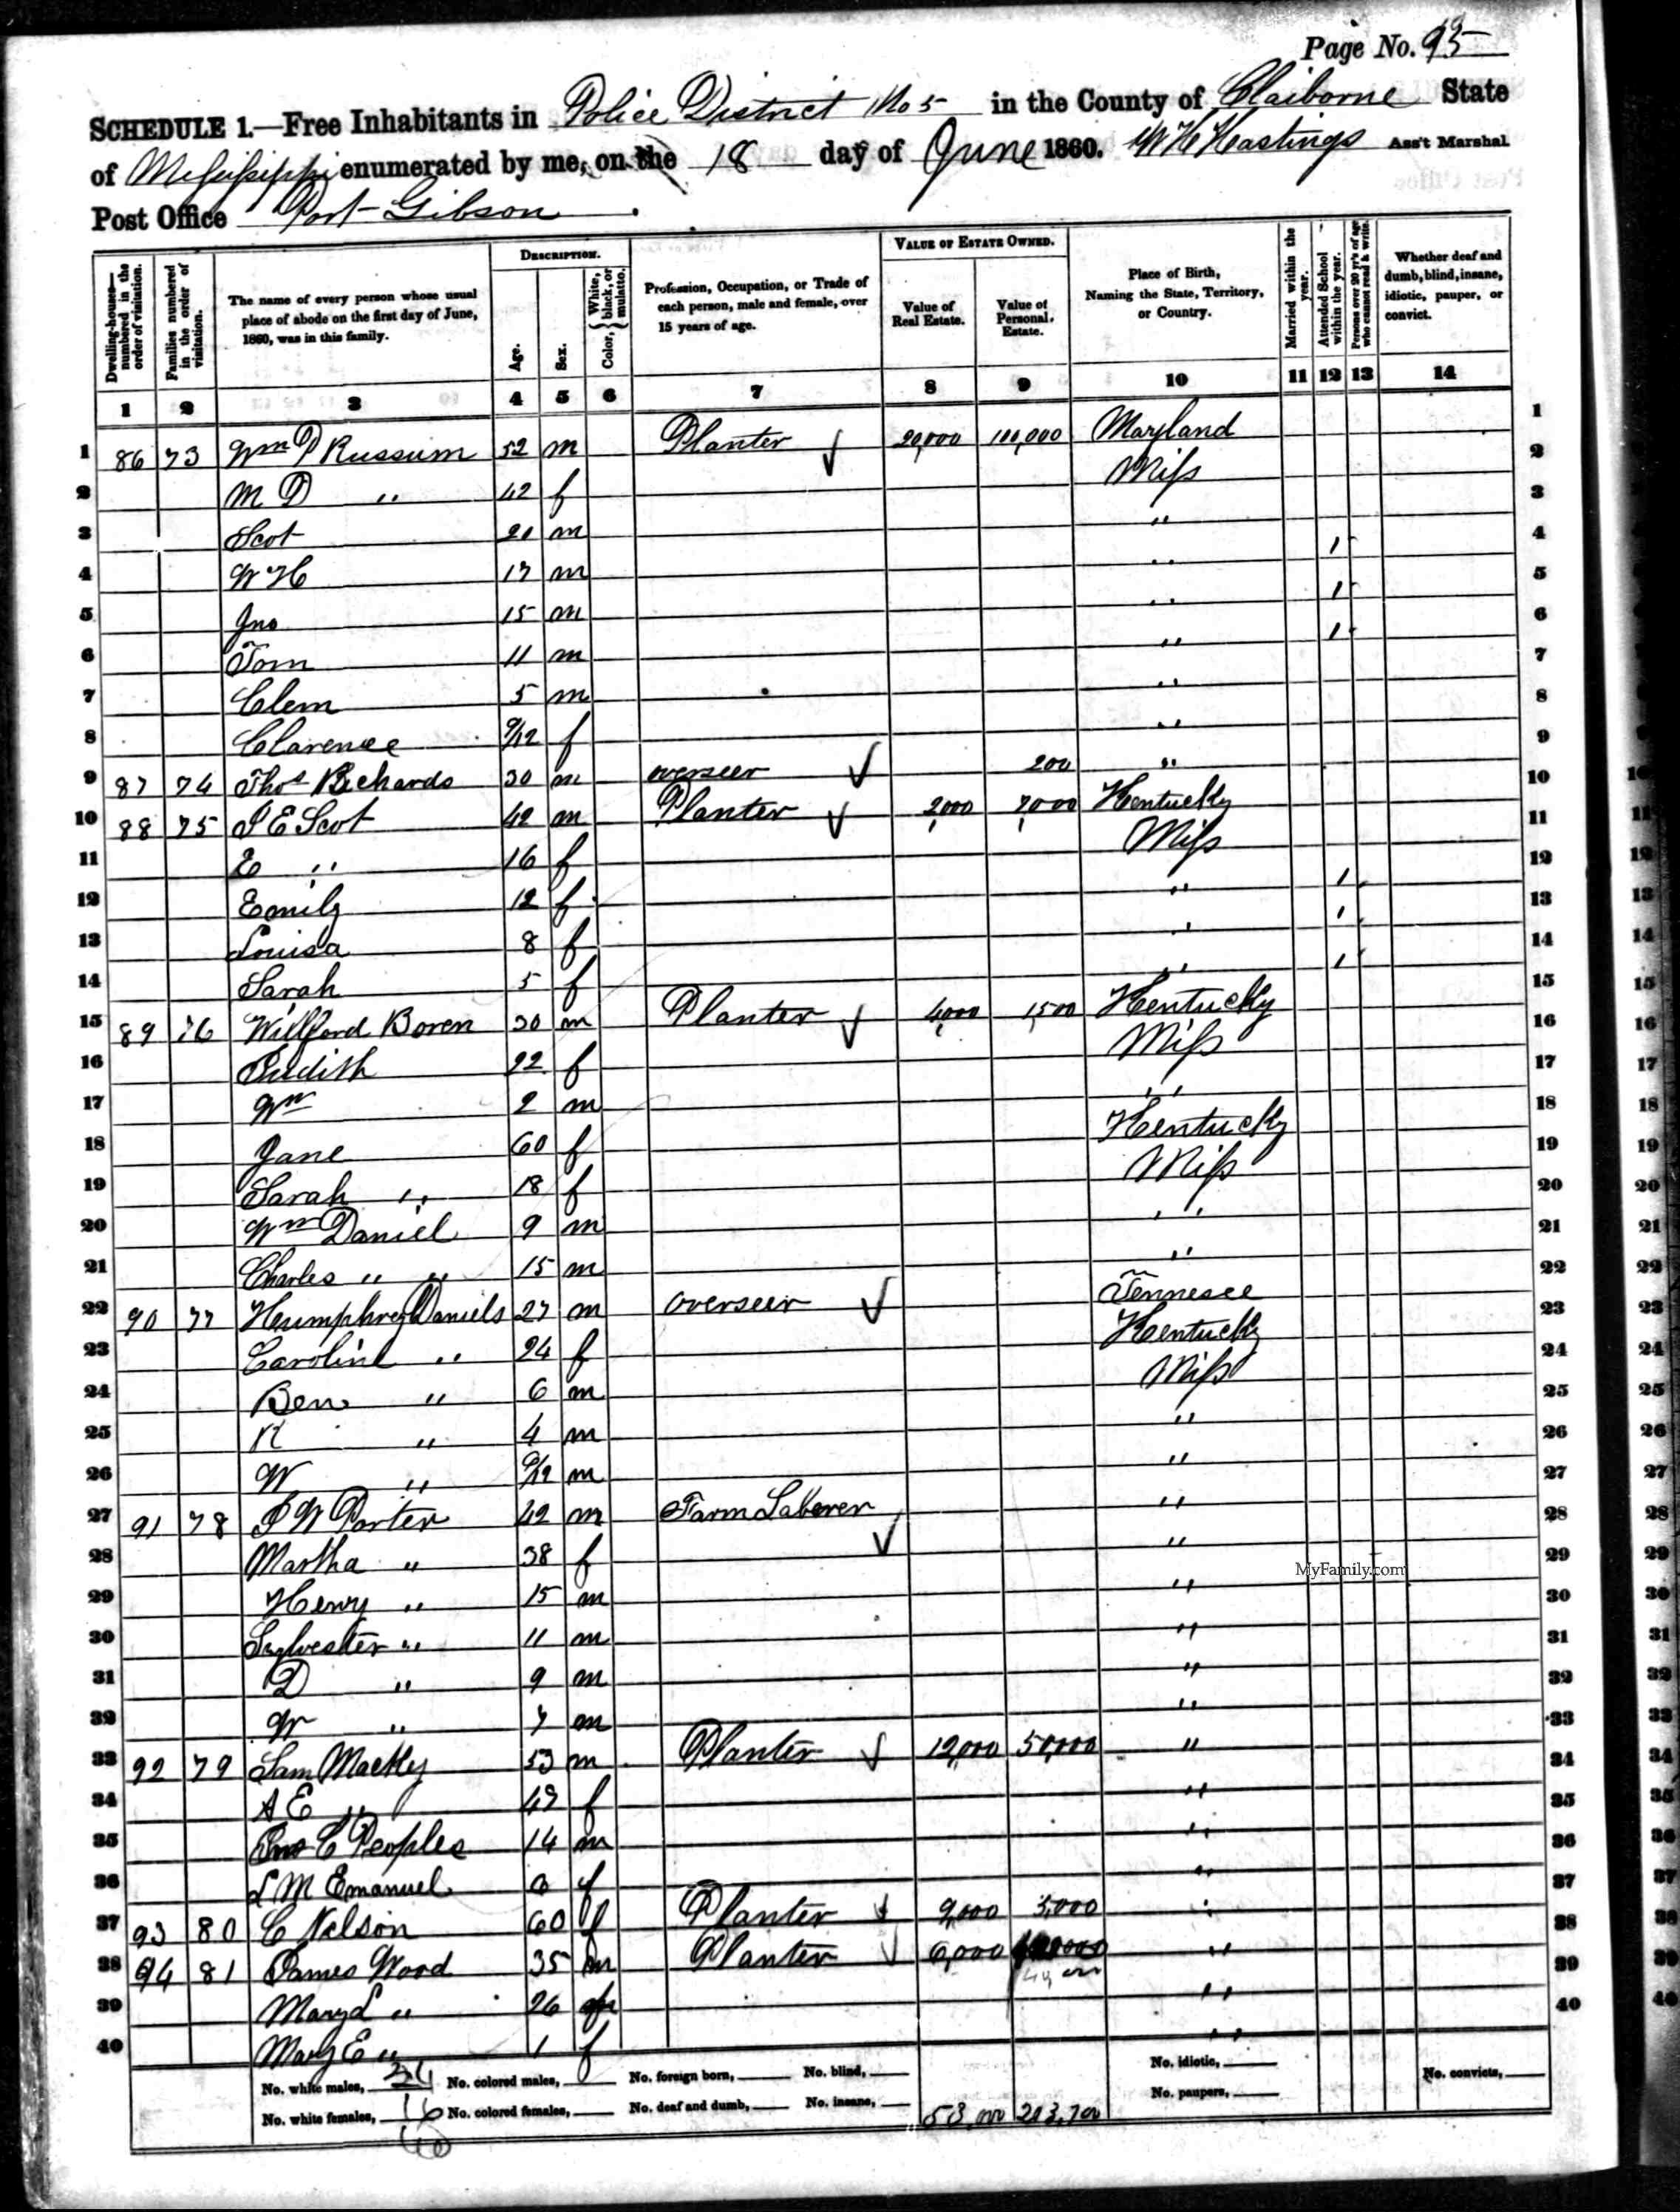 Page No. 95
SCHEDULE 1.—Free Inhabitants in Police District No 5 in the County of Claiborne State
of Missisippi enumerated by me, on the 18 day of June 1860. W H Hastings Ass't Marshal
Post Office Port Gibson
Dwelling-houses—numbered in the order of visitation.
Families numbered in the order of visitation.
The name of every person whose usual place of abode on the first day of June, 1860, was in this family.
DESCRIPTION.
Age.
Sex.
Color, { White, black, or mulatto.
Profession, Occupation, or Trade of each person, male and female, over 15 years of age.
VALUE OF ESTATE OWNED.
Value of Real Estate.
Value of Personal Estate.
Place of Birth, Naming the State, Territory, or Country.
Married within the year.
Attended School within the year.
Persons over 20 yr's of age who cannot read & write.
Whether deaf and dumb, blind, insane, idiotic, pauper, or convict.
1 2 3 4 5 6 7 8 9 10 11 12 13 14
1 86 73 Wm D Russum 52 m Planter 20,000 100,000 Maryland 1
2 M D " 42 f Miss 2
3 Scot 20 m " 3
4 W H 17 m " 1 4
5 Jno 15 m " 1 5
6 Tom 11 m " 1 6
7 Clem 5 m " 7
8 Clarence 9/12 f " 8
9 87 74 Thos Richards 30 m overseer 200 " 9
10 88 75 J E Scot 42 m Planter 2,000 7,000 Kentucky 10
11 E " 16 f Miss 11
12 Emily 12 f " 1 12
13 Louisa 8 f " 1 13
14 Sarah 5 f " 1 14
15 89 76 Willford Boren 30 m Planter 4,000 1,500 Kentucky 15
16 Judith 22 f Miss 16
17 Wm 2 m " 17
18 Jane 60 f Kentucky 18
19 Sarah " 18 f Miss 19
20 Wm Daniel 9 m " 20
21 Charles " " 15 m " 21
22 90 77 Humphrey Daniels 27 m overseer Tennesee 22
23 Caroline " 24 f Kentucky 23
24 Ben " 6 m Miss 24
25 R " 4 m " 25
26 W " 9/12 m " 26
27 91 78 J W Porter 42 m Farm Laborer " 27
28 Martha " 38 f " 28
29 Henry " 15 m " 29
30 Sylvester " 11 m " 30
31 D " 9 m " 31
32 W " 7 m " 32
33 92 79 Sam Mackey 53 m Planter 12,000 50,000 " 33
34 A E " 47 f " 34
35 Jno C Peoples 14 m " 35
36 L M Emanuel f " 36
37 93 80 C Nelson 60 f Planter 9,000 5,000 " 37
38 94 81 James Wood 35 m Planter 6,000 " 38
39 Mary L " 26 " 39
40 Mary E " 1 f " 40
MyFamily.com
No. white males, 24 No. colored males, No. foreign born, No. blind, No. idiotic, No. convicts,
No. white females, 16 No. colored females, No. deaf and dumb, No. insane, 53,000 213,700 No. paupers,
40